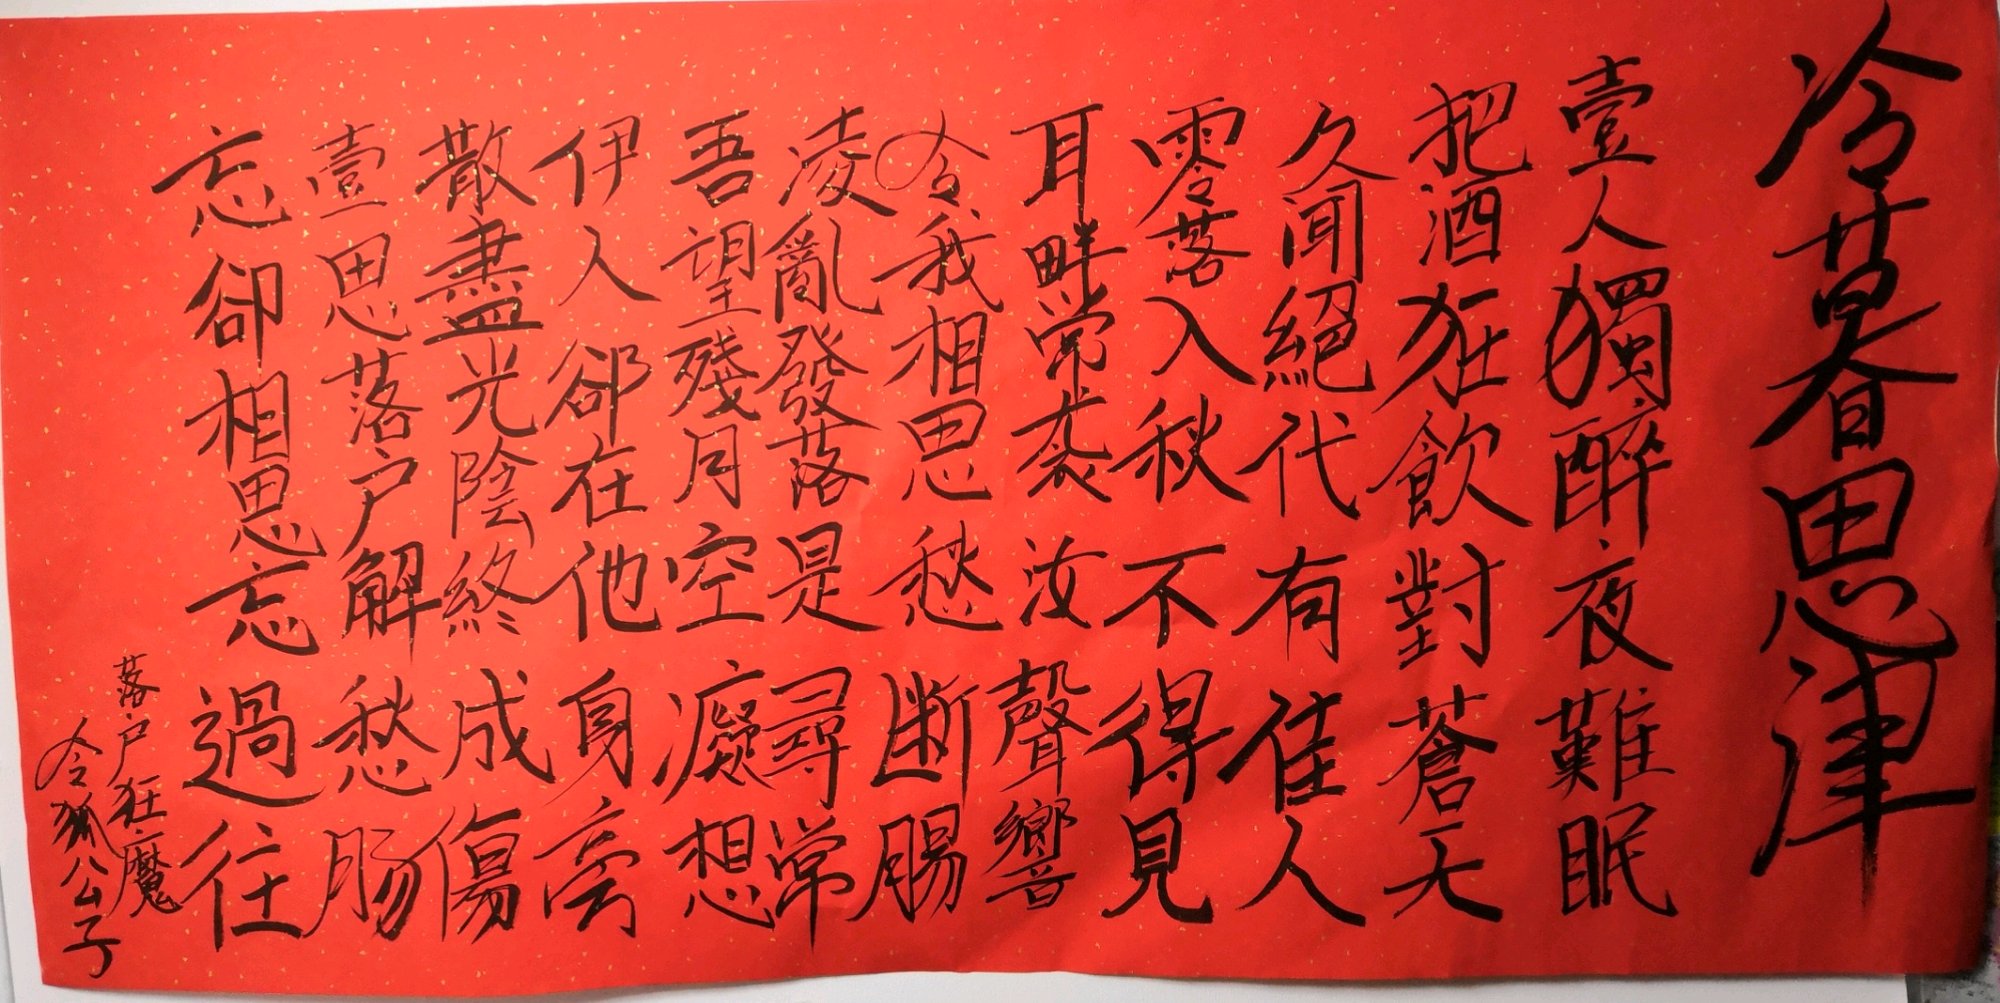 冷暮春思津
壹人獨醉夜難眠
把酒狂飲對蒼天
久聞絕代有佳人
零落入秋不得見
耳畔常袭汝聲響
令我相思愁断腸
凌亂發落是尋常
吾望殘月空癡想
伊人卻在他身旁
散盡光陰終成傷
壹思落户解愁肠
忘卻相思忘過往
落户狂魔
令狐公子